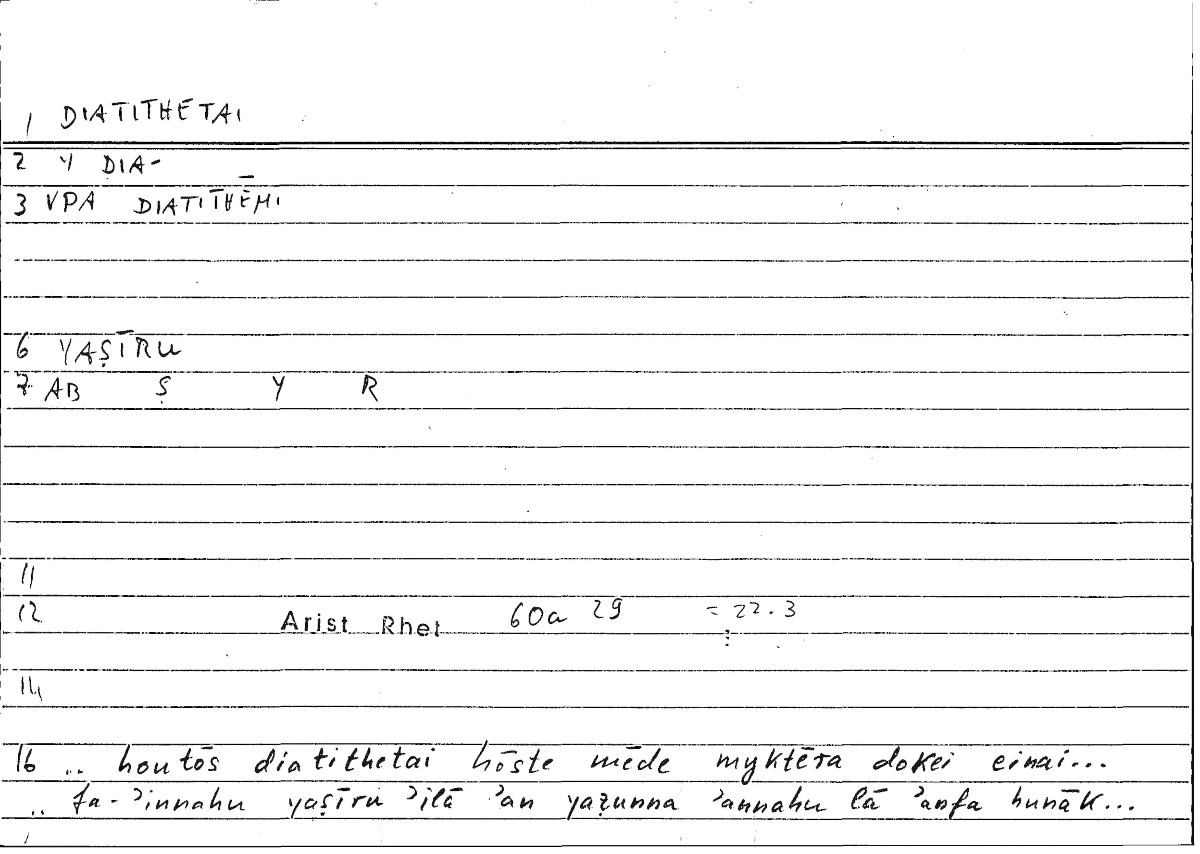 1 DIATITHETAI
2 Y DIA-
3 VPA DIATITHĒMI
6 YAṢĪRU
7 AB Ṣ Y R
11
12 Arist Rhet 60a 29 = 22.3
14
16 .. houtōs diatithetai hōste mēde myktēra dokei einai...
.. fa-ʾinnahu yaṣīru ʾilā ʾan yaẓunna ʾannahu lā ʾanfa hunāk...